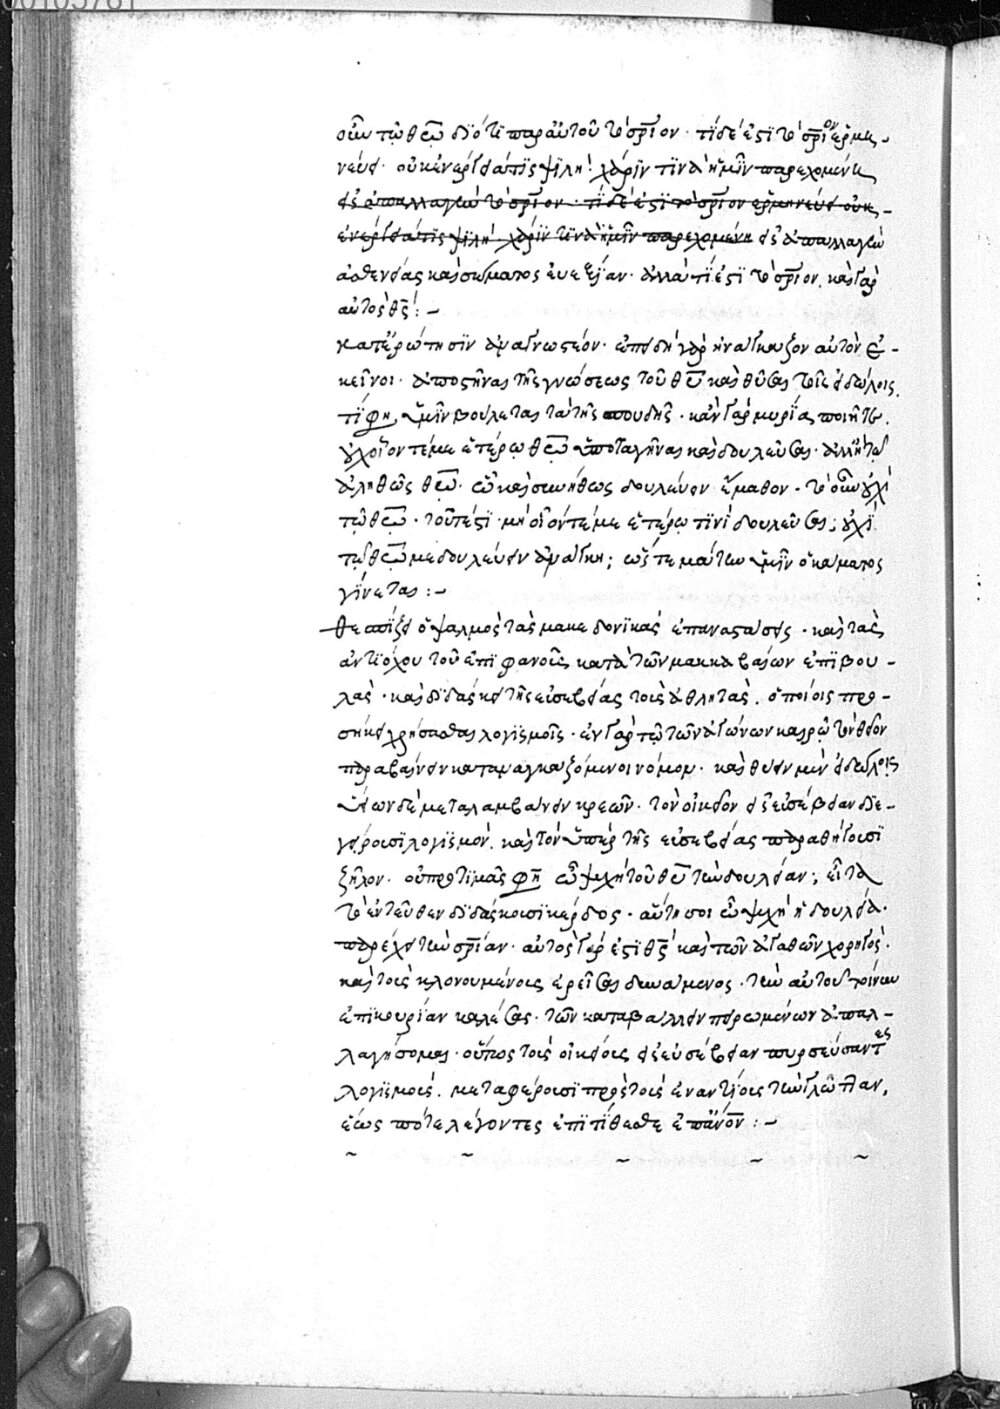 οὖν τῷ θεῷ διότι παρ' αὐτοῦ τὸ σρ̅ιον· τί δέ ἐστι τὸ σρ̅ιον ἑρμη-
νεύει· οὐκ ἐνεργείᾳ τις ψιλὴ χάριν τινὰ ἡμῖν παρεχομένη
εἰς ἀπαλλαγὴν τὸ σρ̅ιον· τί δέ ἐστι τὸ σρ̅ιον ἑρμηνεύει οὐκ
ἐνεργείᾳ τις ψιλὴ χάριν τινὰ ἡμῖν παρεχομένη εἰς ἀπαλλαγὴν
ἀσθενείας καὶ σώματος εὐεξίαν· ἀλλὰ τί ἐστι τὸ σρ̅ιον, καὶ γὰρ
αὐτὸς θς̅ :-
κατ' ἐρώτησιν ἀναγνωστέον· ἐπειδὴ γὰρ ἠνάγκαζον αὐτὸν ἐ-
κεῖνοι· ἀποστῆναι τῆς γνώσεως τοῦ θυ̅ καὶ θῦσαι τοῖς εἰδώλοις,
τί φη, ὑμῖν βούλεται τὰ τῆς σπουδῆς· κἂν γὰρ μυρία ποιῆτε,
οὐχ οἷόν τέ με ἑτέρῳ θεῷ ὑποταγῆναι καὶ δουλεῦσαι· ἀλλ' ἢ τῷ
ἀληθῶς θεῷ· ᾧ καὶ συνήθως δουλεύειν ἔμαθον· τὸ οὖν οὐχὶ
τῷ θεῷ· τουτέστι· μὴ οἷόν τέ με ἑτέρῳ τινὶ δουλεῦσαι; οὐχὶ
τῷ θεῷ με δουλεύειν ἀνάγκη; ὥστε μάτην ὑμῖν ὁ κάματος
γίνεται :-
θεσπίζει ὁ ψαλμὸς τὰς μακεδονικὰς ἐπαναστάσεις· καὶ τὰς
ἀντιόχου τοῦ ἐπιφανοῦς κατὰ τῶν μακκαβαίων ἐπιβου-
λάς· καὶ διδάσκει τῆς εὐσεβείας τοὺς ἀθλητάς, ὁποίοις προ-
σήκει χρήσασθαι λογισμοῖς· ἐν γὰρ τῷ τῶν ἀγώνων καιρῷ τὸν θεῖον
παραβαίνειν καταναγκαζόμενοι νόμον· καὶ θύειν μὲν εἰδώλοις
ὑείων δὲ μεταλαμβάνειν κρεῶν· τὸν οἰκεῖον εἰς εὐσέβειαν διε-
γείρουσι λογισμόν, καὶ τὸν ὑπὲρ τῆς εὐσεβείας παραθήγουσι
ζῆλον· οὐ προτιμᾷς φη̅ ὦ ψυχὴ τοῦ θυ̅ τὴν δουλείαν; εἶτα
τὸ ἐντεῦθεν διδάσκουσι κέρδος· αὕτη σοι ὦ ψυχὴ ἡ δουλεία·
παρέχει τὴν σρ̅ίαν· αὐτὸς γάρ ἐστι θς̅ καὶ τῶν ἀγαθῶν χορηγός·
καὶ τοὺς κλονουμένους ἐρεῖσαι δυνάμενος· τὴν αὐτοῦ τοίνυν
ἐπικουρίαν καλέσας· τῶν καταβαλλεῖν πειρωμένων ἀπαλ-
λαγήσομαι· οὕτως τοὺς οἰκείους εἰς εὐσέβειαν πυρσεύσαντες
λογισμούς, μεταφέρουσι πρὸς τοὺς ἐναντίους τὴν γλῶτταν,
ἕως πότε λέγοντες ἐπιτίθεσθε ἐπ' ἄνον̅ :-